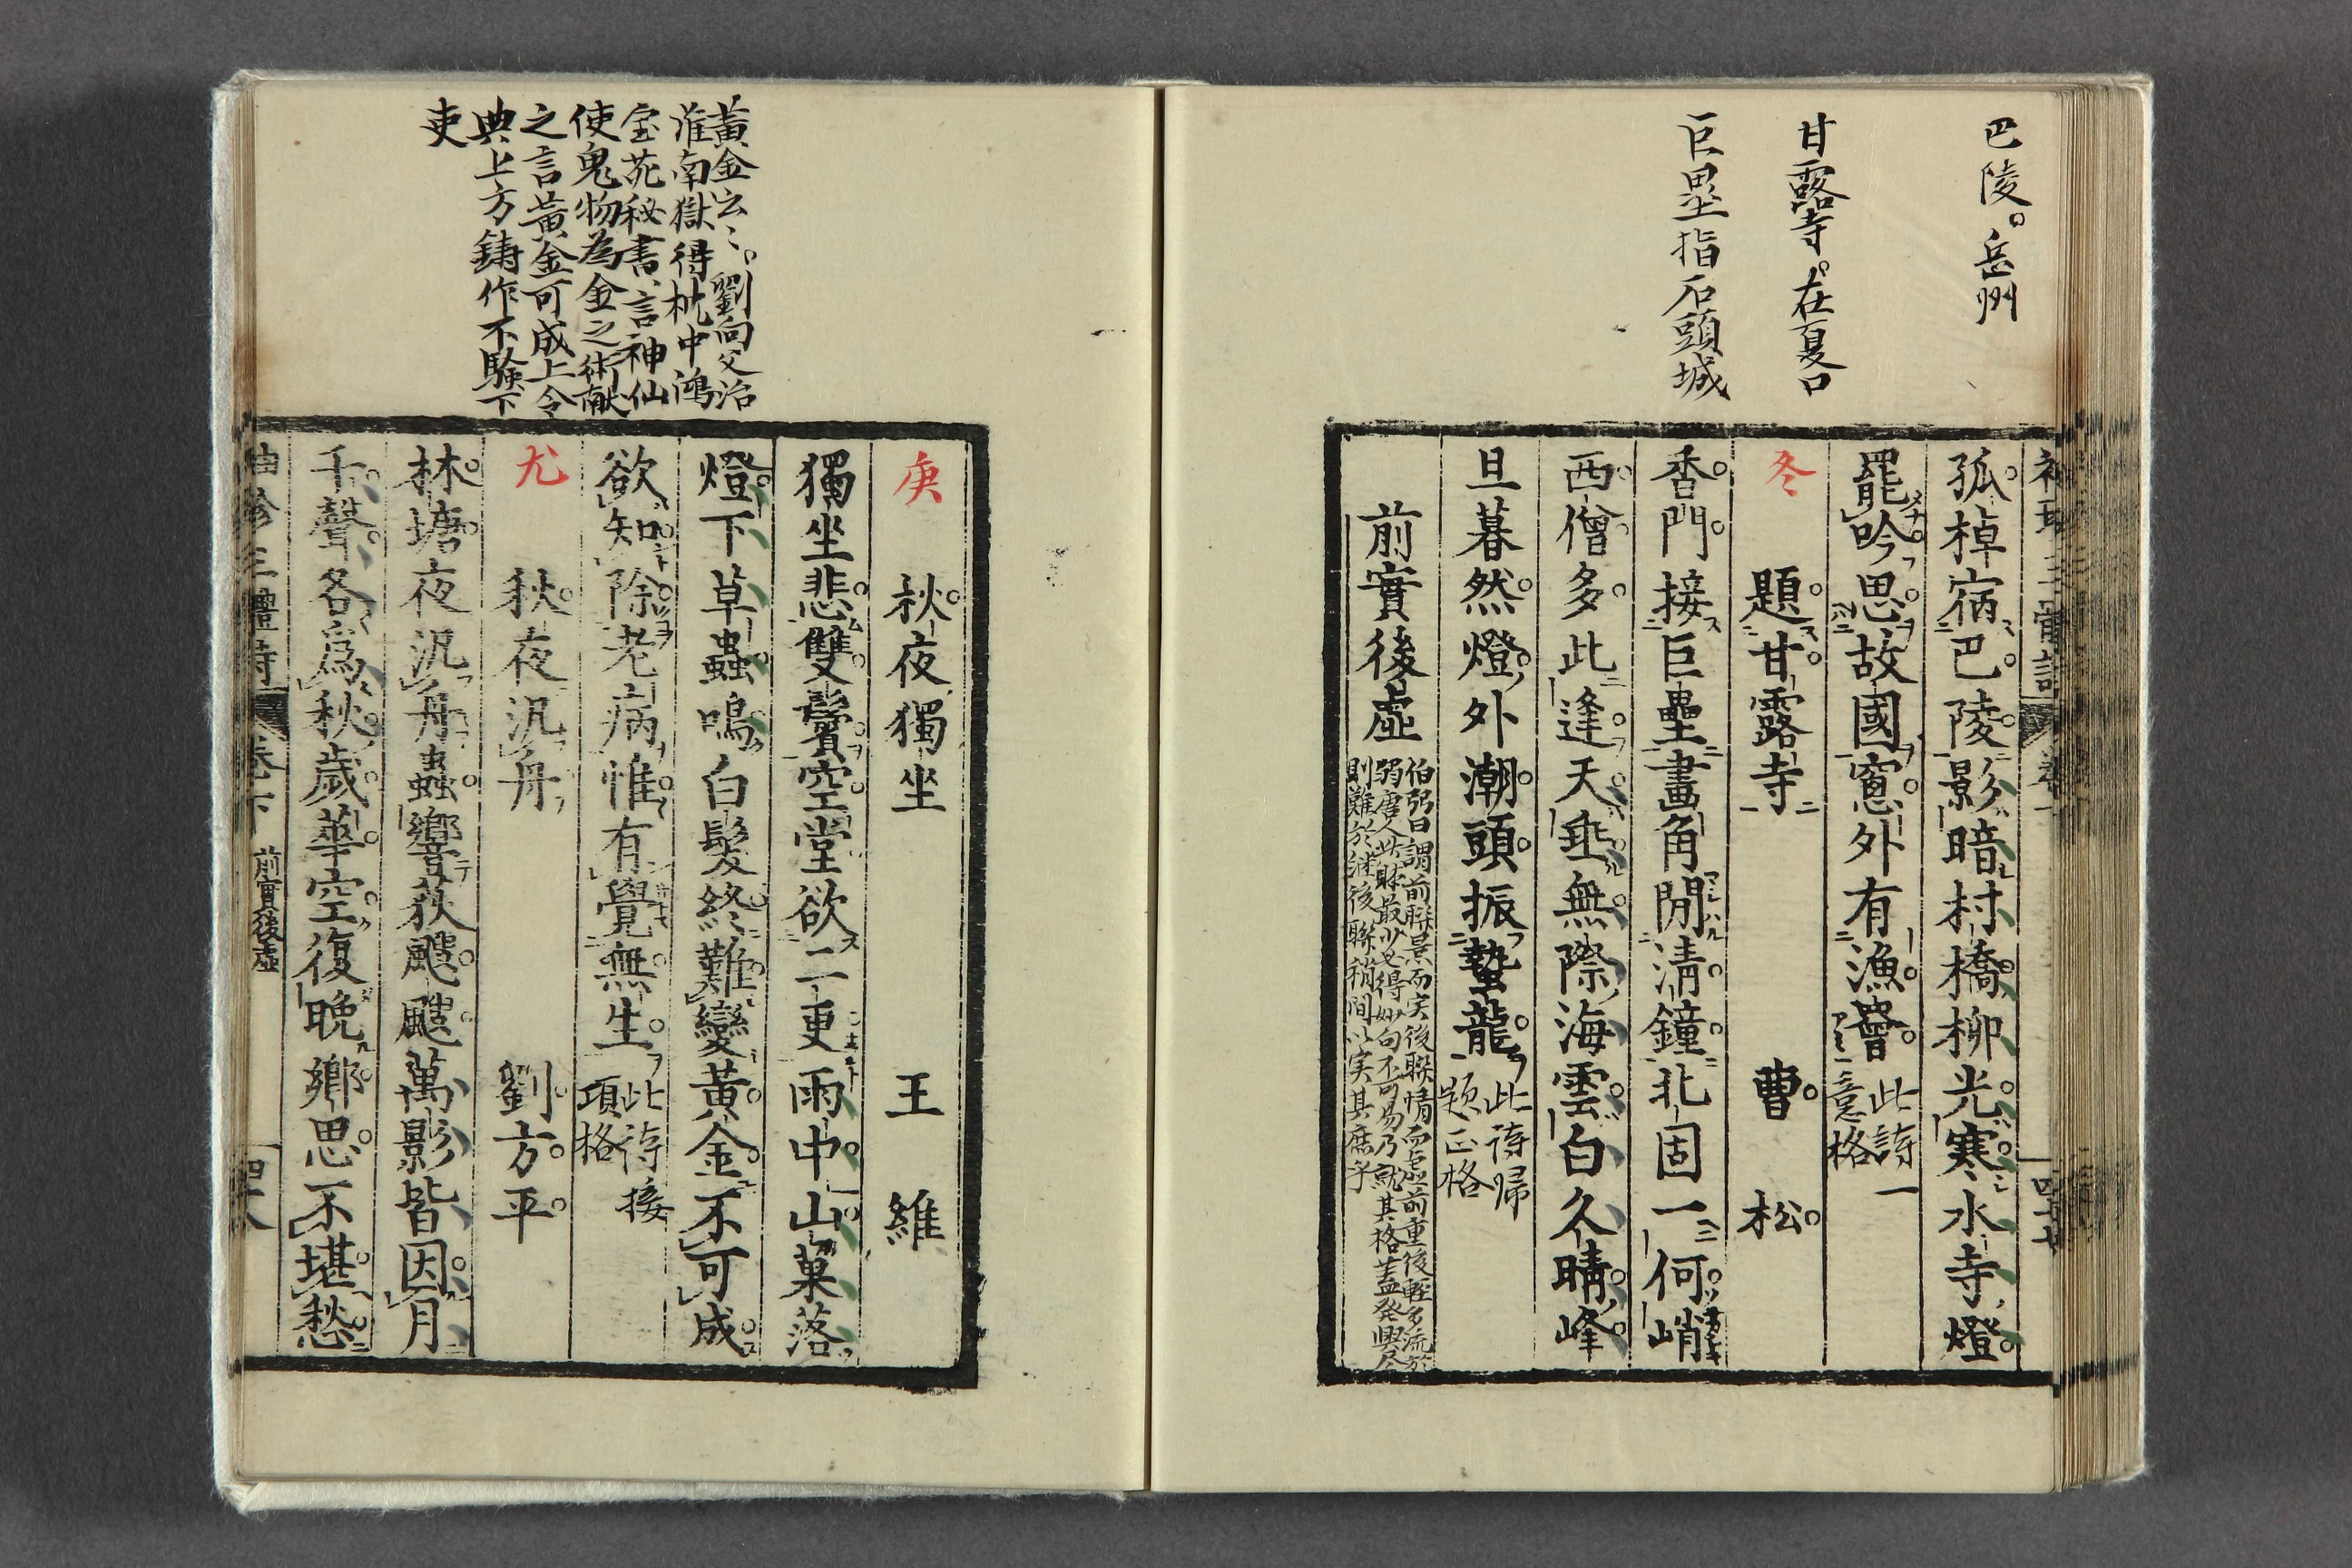 巴陵。岳州
甘露寺。在夏口
巨壘指石頭城
孤棹宿巴陵影暗村橋柳光寒水寺燈
罷吟思故國窻外有漁罾
此詩一
意格
冬
題甘露寺 曹松
香門接巨壘畫角閒清鐘北固一何峭
西僧多此逢天垂無際海雲白久晴峰
旦暮然燈外潮頭振蟄龍
此詩歸
題正格
前實後虛
伯弜曰謂前聯景而実後聯情而虛前重後輕多流於
弱唐人此躰最少必得妙句不可易乃就其格盖発興尽
則難於継後聯稍間以実其庶乎
黃金云〻。劉向父治
淮南獄得枕中鴻
宝苑秘書、言神仙
使鬼物為金之術献
之言黃金可成上令
典上方鋳作不験下
吏
庚
秋夜獨坐 王維
獨坐悲雙鬢空堂欲二更雨中山菓落
燈下草蟲鳴白髮終難變黃金不可成
欲知除老病惟有覺無生
此詩接
項格
尤
秋夜汎舟 劉方平
林塘夜汎舟蟲響荻颼颼萬影皆因月
千聲各爲秋歲華空復晚鄉思不堪愁
三體詩 卷下 前實後虛 四八